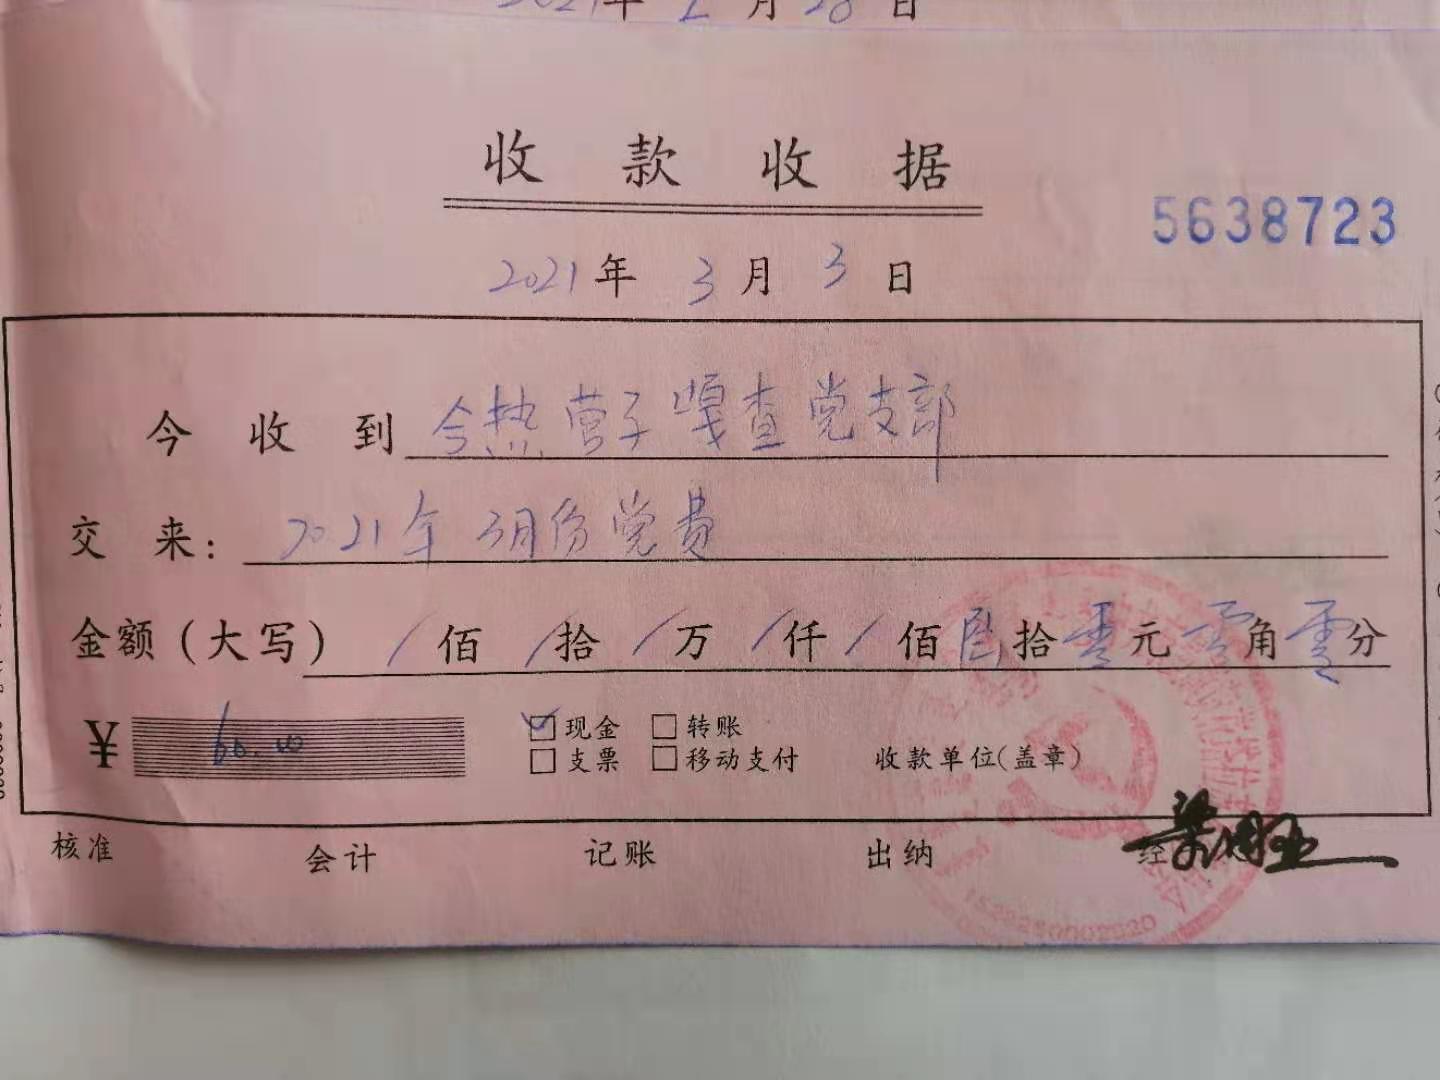 2021年2月28日
收款收据
5638723
2021年3月3日
今收到 今热营子嘎查党支部
交来: 2021年3月份党费
金额(大写) / 佰 / 拾 / 万 / 仟 / 佰 拾零元零角零分
¥ 60.00
现金 转账
支票 移动支付 收款单位(盖章)
核准 会计 记账 出纳 经